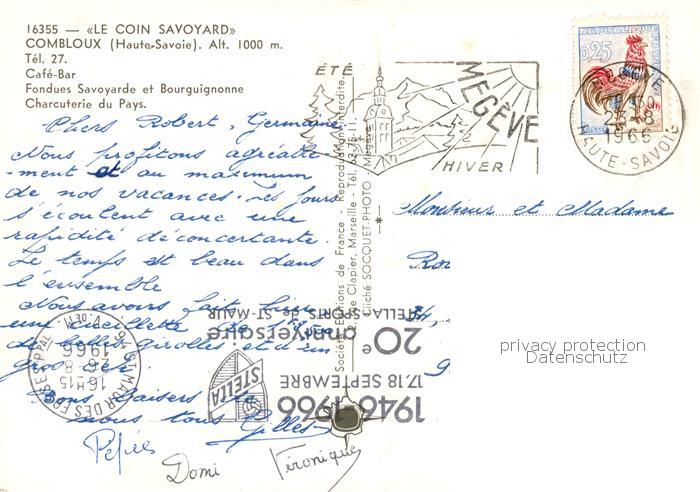 16355 — «LE COIN SAVOYARD»
COMBLOUX (Haute-Savoie). Alt. 1000 m.
Tél. 27.
Café-Bar
Fondues Savoyarde et Bourguignonne
Charcuterie du Pays.
Chers Robert, Germaine
Nous profitons agréable-
-ment et au maximum
de nos vacances. Les jours
s'écoulent avec une
rapidité déconcertante.
Le temps est beau dans
l'ensemble
Nous avons fait hier
une cueillette de
de belles girolles
gros
Bons baisers de
nous tous Gilles
Domi
Véronique
Société Editions de France - Reproduction interdite.
Rue Clapier, Marseille - Tél. 62-75-11.
Cliché SOCQUET-PHOTO - Megève
ÉTÉ
MEGÈVE
HIVER
0,25
MEGÈVE
23-8
1966
HAUTE-SAVOIE
Monsieur et Madame
1946-1966
17.18 SEPTEMBRE
20e anniversaire
STELLA-SPORTS de ST-MAUR
STELLA
94 ST-MAUR DES FOSSES PPAL
16H15
26-8
1966
privacy protection
Datenschutz